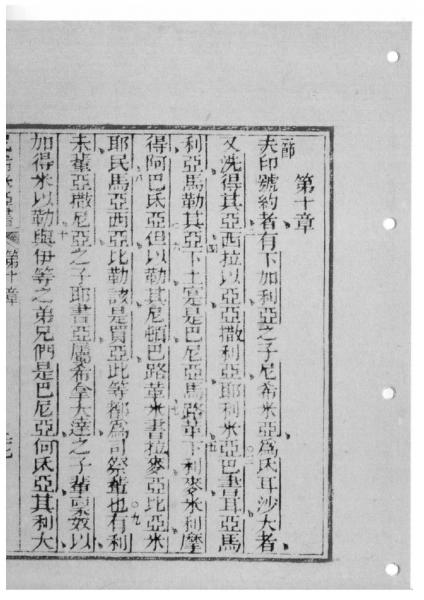 第十章
一節夫印號約者有下加利亞之子尼希米亞爲氐耳沙大者
又洗得其亞西拉以亞亞撒利亞耶利米亞巴書耳亞馬
利亞馬勒其亞下土是巴尼亞馬路革下利麥米利摩
得阿巴氐亞但以勒其尼頓巴路革米書拉麥亞比亞米
耶民馬亞西亞比勒該是買亞此等都為司祭輩也有利
未輩亞撒尼亞之子耶書亞屬希拿大達之子輩奴以
加得米以勒與伊等之弟兄們是巴尼亞何氐亞其利大
第十章